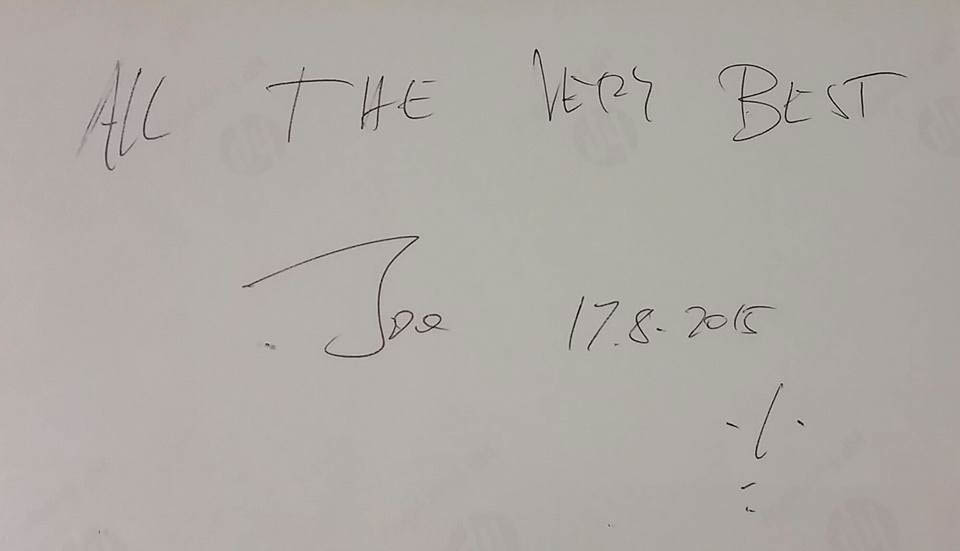 ALL THE VERY BEST
Joe 17.8.2015